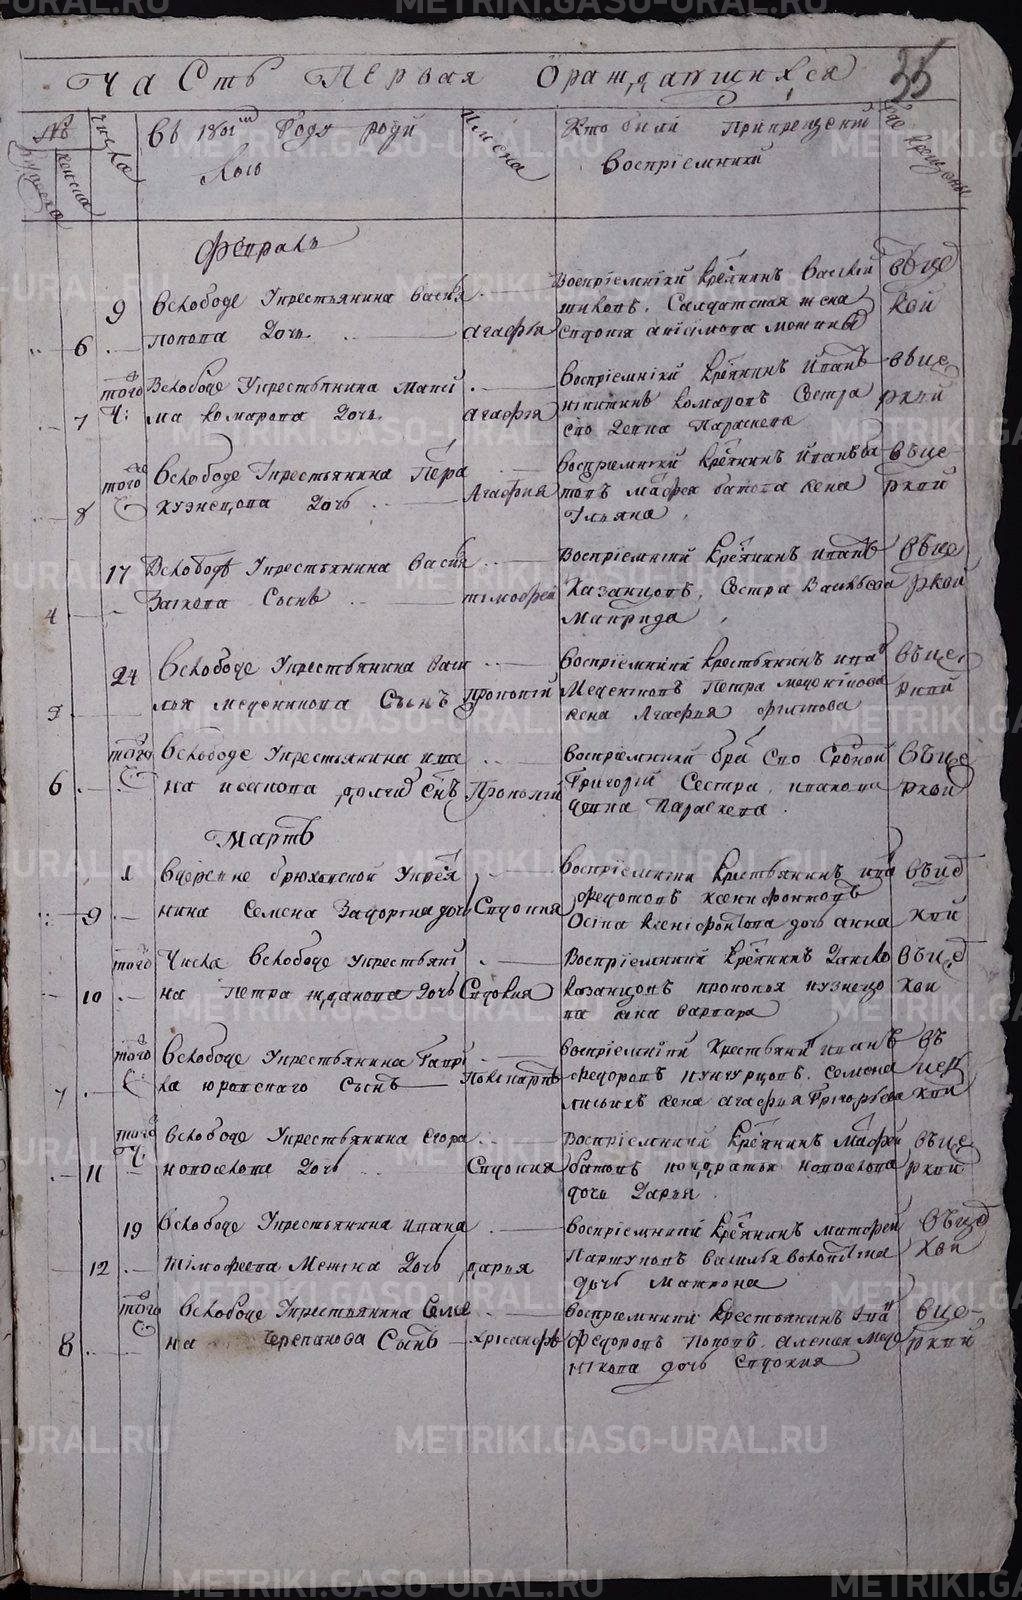 Часть Первая Орождающихся
35
№
числа
въ 1801мъ Году роди
лось
имена
Кто были Прикрещенiи
воспрiемники
где крещены
женска
Февраль
9 Вслободе Укрестьянина Васил
попова Дочь
6
Агафья
Воспрiемники Кретнинъ Василей
шиховъ. Салдатская жена
въце
ркви
того Ч:
Вслободе Укрестьянина Макси
ма комарова Дочь
7
Агафья
Воспрiемнiки Кретнинъ Иванъ
никитинъ комаровъ Сестра
ево Девка Параскева
въце
ркви
того Ч
Вслободе Укрестьянина Петра
кузнецова Дочь
8
Агафия
Воспрiемники Кретнинъ Иванъ ба
товъ Мафея батова жена
Ульяна
въце
ркви
17 Вслободе Укрестьянина Васил
Заикова Сынъ
4
тимофей
Воспрiемнiки Кретнинъ Иванъ
Казанцовъ, Сестра Васильева
Маврида
въце
ркви
24 Вслободе Укрестьянина Васи
лья меденикова Сынъ
5
прокопiй
Воспрiемники крестьянинъ ива
Меденiковъ Петра меденiкова
жена Агафия филипова
въце
ркви
того Ч
Вслободе Укрестьянина ива
на
6
Прокопiй
Воспрiемники бра ево Сродной
Григорiй Сестра, ивакова
девка Параскева
въце
ркви
Мартъ
1 Вдеревне брюханской Укрестья
нина Семена Задорина дочь
9
Евдокия
Воспрiемники Крестьянинъ ива
федотовъ ксенофонтовъ
Осипа ксенiфонтова дочь анна
въце
ркви
того Числа Вслободе укрестьянi
на Петра жданова Дочь
10
Евдокия
Воспрiемники Кретнинъ Данило
казанцовъ прокопья кузнецо
ва жена варвара
въце
ркви
того Ч
Вслободе Укрестьянина Гаврi
ла юровскаго Сынъ
7
Поликарпъ
Воспрiемнiки Крестьянинъ иванъ
федоровъ кунгурцовъ. Семена
жена агафия Григорьева
въ
цер
кви
того Ч:
Вслободе Укрестьянина Егора
новоселова Дочь
11
Евдокия
Воспрiемники Кретнинъ Мафеи
батовъ кондратья новоселова
дочь Дарья
въце
ркви
19 Вслободе Укрестьянина Ивана
тимофеева Мехина Дочь
12
дарья
Воспрiемники Кретнинъ матфей
Паршуковъ василья
дочь матрона
въце
ркви
того Ч
Вслободе Укрестьянина Семе
на Черепанова Сынъ
8
Хрисанфъ
Воспрiемники Крестьянинъ ива
Федоровъ Поповъ. Алексея Меде
нiкова дочь Евдокия
вце-
ркви
METRIKI.GASO-URAL.RU